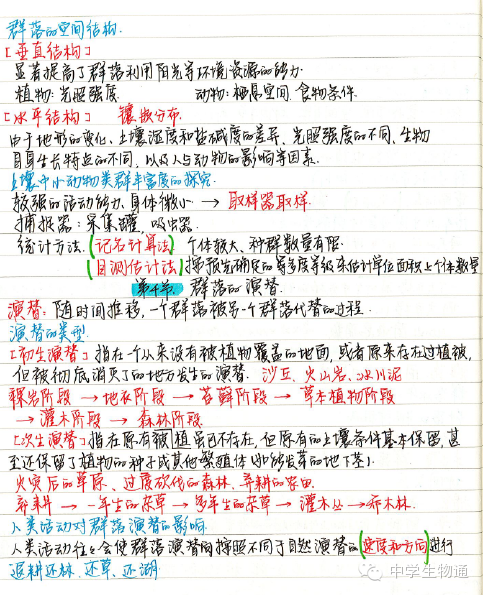 群落的空间结构.
[垂直结构]
显著提高了群落利用阳光等环境资源的能力.
植物:光照强度. 动物:栖息空间.食物条件.
[水平结构] 镶嵌分布.
由于地形的变化、土壤湿度和盐碱度的差异、光照强度的不同、生物
自身生长特点的不同、以及人与动物的影响等因素.
土壤中小动物类群丰富度的探究.
较强的活动能力.身体微小 → 取样器取样.
捕捉器:采集罐,吸虫器.
统计方法.(记名计算法)个体较大、种群数量有限.
(目测估计法)按预先确定的多度等级来估计单位面积上个体数量
第4节. 群落的演替.
演替:随时间推移,一个群落被另一个群落代替的过程.
演替的类型
[初生演替]指在一个从来没有被植物覆盖的地面,或者原来存在过植被,
但被彻底消灭了的地方发生的演替. 沙丘、火山岩、冰川泥
裸岩阶段 → 地衣阶段 → 苔藓阶段 → 草本植物阶段
→ 灌木阶段 → 森林阶段
[次生演替]指在原有植被虽已不存在,但原有的土壤条件基本保留,甚
至还保留了植物的种子或其他繁殖体(如能发芽的地下茎).
火灾后的草原、过度砍伐的森林、弃耕的农田
弃耕 → 一年生的杂草 → 多年生的杂草 → 灌木丛 → 乔木林.
人类活动对群落演替的影响
人类活动往往会使群落演替按照不同于自然演替的(速度和方向)进行
退耕还林、还草、还湖
中学生物通